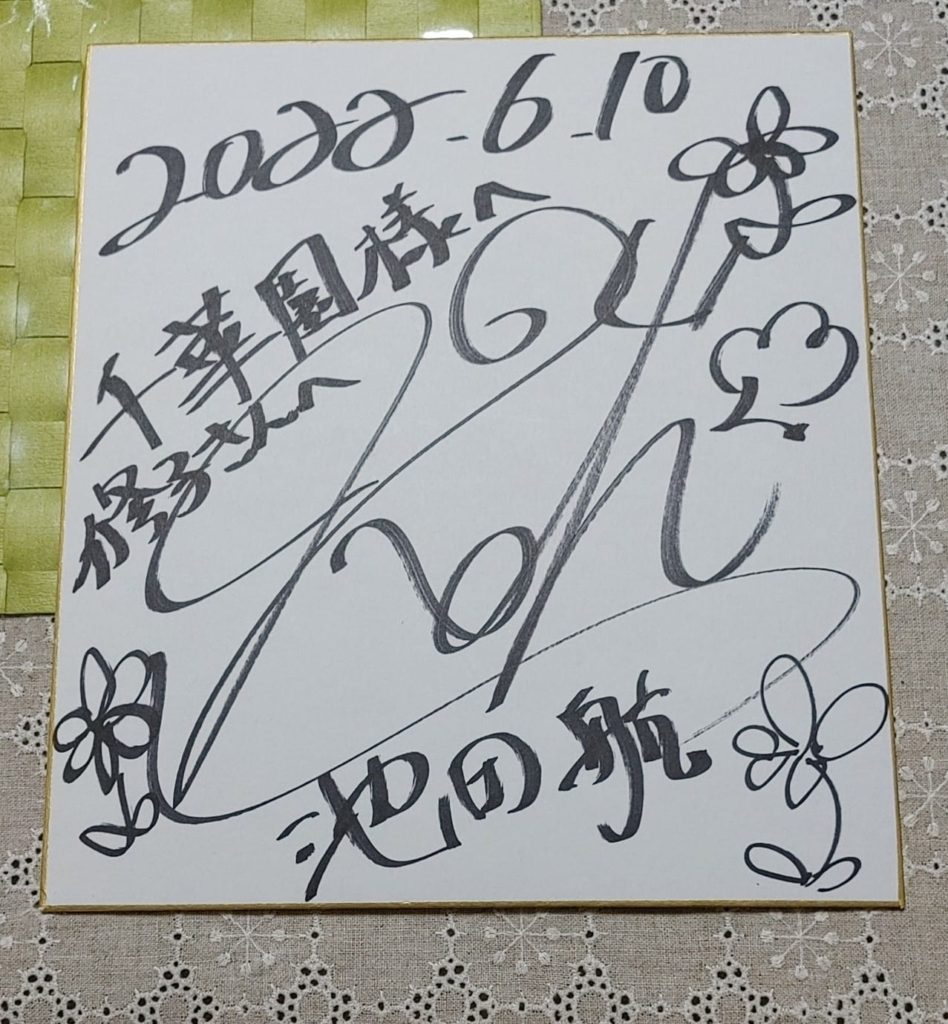 2022-6-10
千華園様へ
修子さんへ
池田航